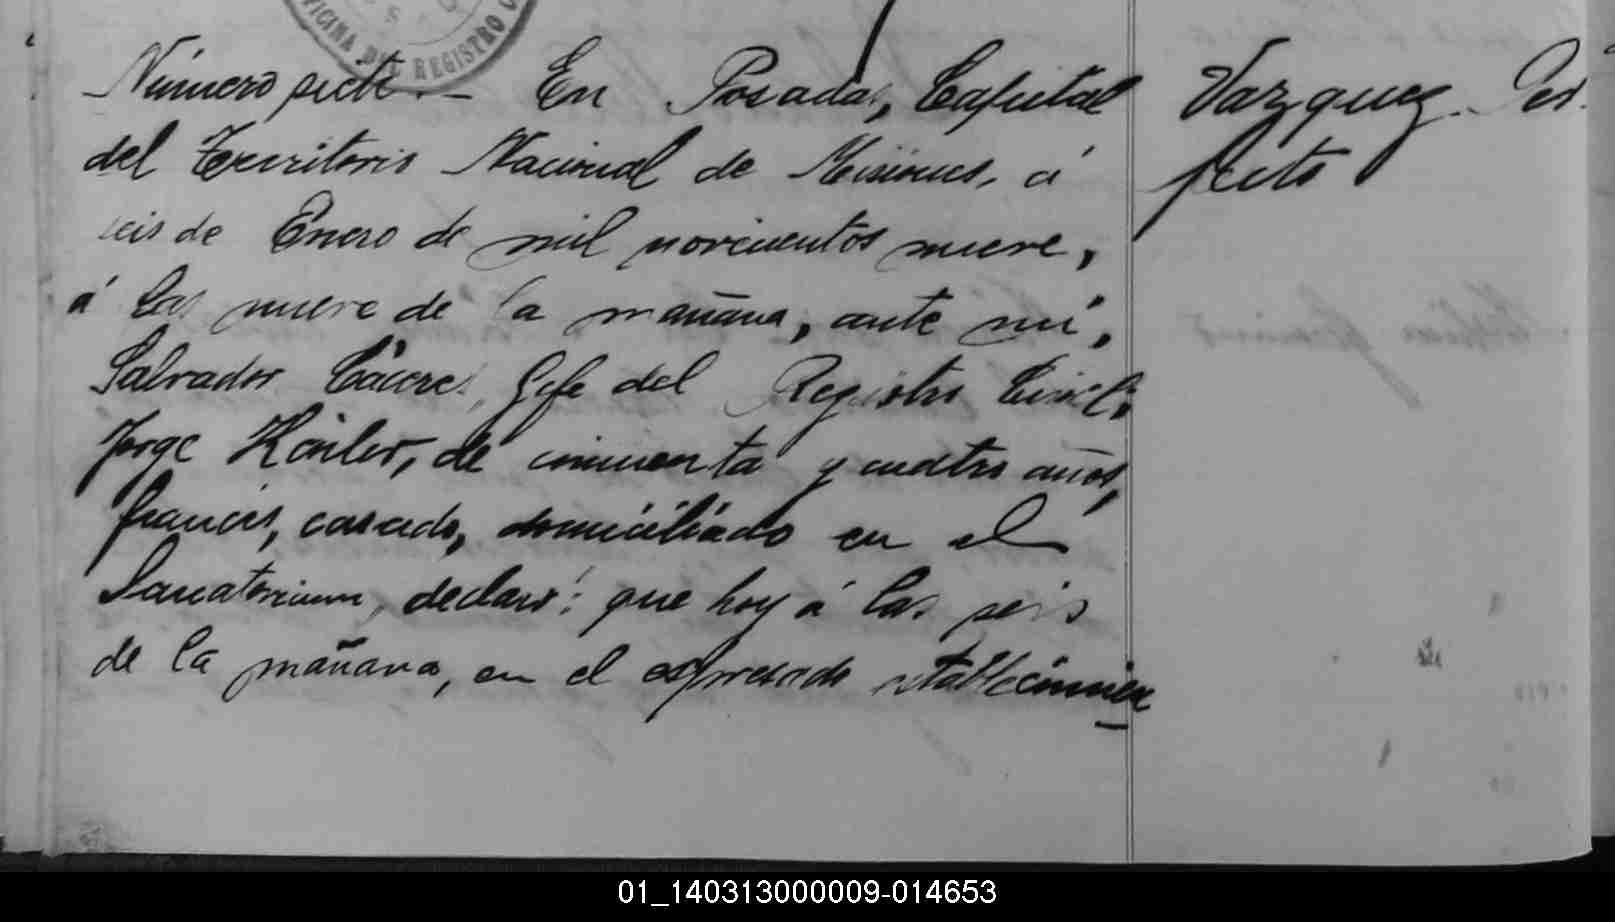 OFICINA DEL REGISTRO
Número siete.— En Posadas, Capital
del Territorio Nacional de Misiones, á
seis de Enero de mil novecientos nueve,
á las nueve de la mañana, ante mí,
Salvador Cáceres, Gefe del Registro Civil,
Jorge Kailer, de cincuenta y cuatro años,
francés, casado, domiciliado en el
Sanatorium, declaró: que hoy á las seis
de la mañana, en el expresado establecimien
Vazquez. Per-
fecto
01_140313000009-014653